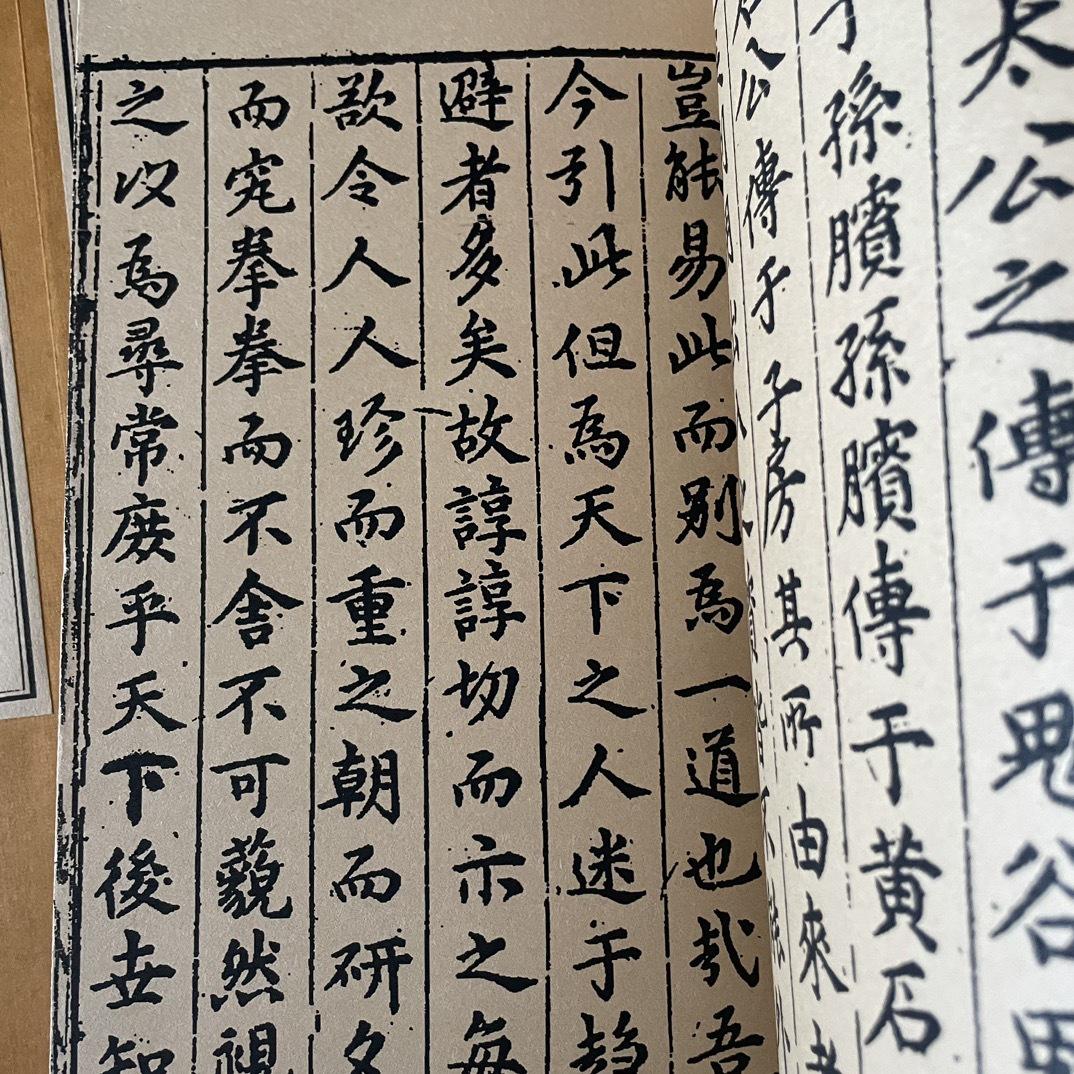 太公之傳于鬼谷
孫臏孫臏傳于黄石
石公傳于子房其所由來者
豈能易此而别為一道也哉吾
今引此但為天下之人迷于趋
避者多矣故諄諄切而示之每
欲令人人珍而重之朝而研夕
而究拳拳而不舍不可藐然視
之以為尋常庻乎天下後世知